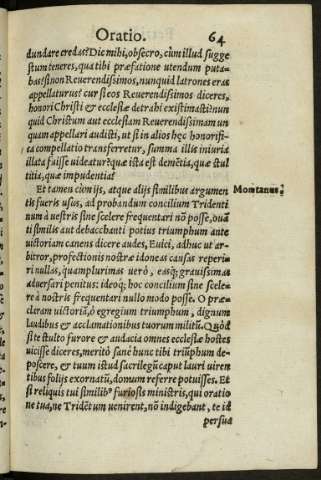 Oratio. 64
dundare credas? Dic mihi, obsecro, cùm illud sugge
stum teneres, qua tibi præfatione utendum puta-
bas? si non Reuerendißimos, nunquid latrones eras
appellaturus? cur si eos Reuerendißimos diceres,
honori Christi & ecclesiæ detrahi existimasti? nun
quid Christum aut ecclesiam Reuerendißimam un
quam appellari audisti, ut si in alios hęc honorifi-
ca compellatio transferretur, summa illis iniuria
illata fuisse uideatur? quæ ista est demētia, quæ stul
titia, quæ impudentia?
Et tamen cùm ijs, atque alijs similibus argumen Montanus
tis fueris usus, ad probandum concilium Tridenti
num à uestris sine scelere frequentari nō posse, ouā
tis similis aut debacchanti potius triumphum ante
uictoriam canens dicere audes, Euici, adhuc ut ar-
bitror, profectionis nostræ idoneas causas reperi-
ri nullas, quamplurimas uerò, easq́; grauißimas
aduersari penitus: ideoq́; hoc concilium sine scele-
re à nostris frequentari nullo modo posse. O præ-
claram uictoriā, ô egregium triumphum, dignum
laudibus & acclamationibus tuorum militū. Quòd
si te stulto furore & audacia omnes ecclesiæ hostes
uicisse diceres, meritò sanè hunc tibi triūphum de-
poscere, & tuum istud sacrilegū caput lauri uiren
tibus folijs exornatū, domum referre potuisses. Et
si reliquis tui similib⁹ furiosis ministris, qui oratio
ne tua, ne Tridētum uenirent, nō indigebant, te id
persua